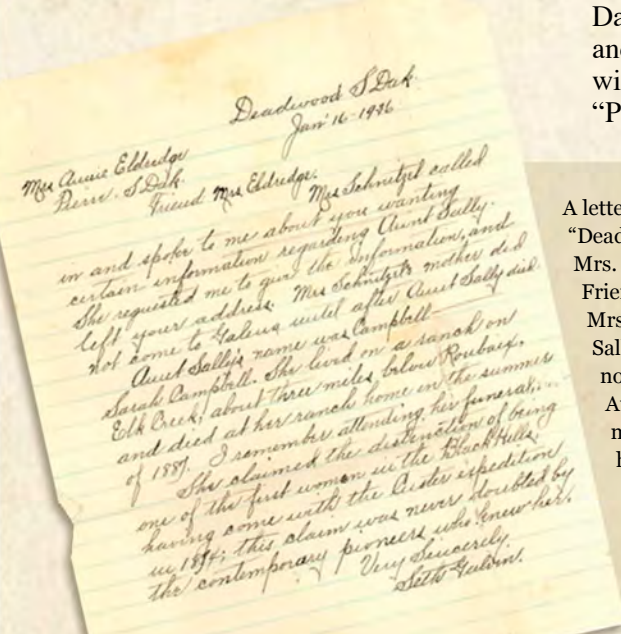 Deadwood S Dak.
Jan' 16-1936
Mrs Annie Eldredge
Pierre. S. Dak.
Friend Mrs Eldredge.
Mrs Schnitzel called
in and spoke to me about you wanting
certain information regarding Aunt Sally.
She requested me to give the information, and
left your address. Mrs Schnitzel's mother did
not come to Galena until after Aunt Sally died.
Aunt Sally's name was Campbell
Sarah Campbell. She lived on a ranch on
Elk Creek, about three miles below Roubaix,
and died at her ranch home in the summer
of 1887. I remember attending her funeral.
She claimed the distinction of being
one of the first women in the Black Hills
having come with the Custer expedition
in 1874; this claim was never doubted by
the contemporary pioneers who knew her.
Very Sincerely
Seth Galvin.
Da
and
wi
“P
A lette
“Dead
Mrs.
Frien
Mrs
Sal
no
A